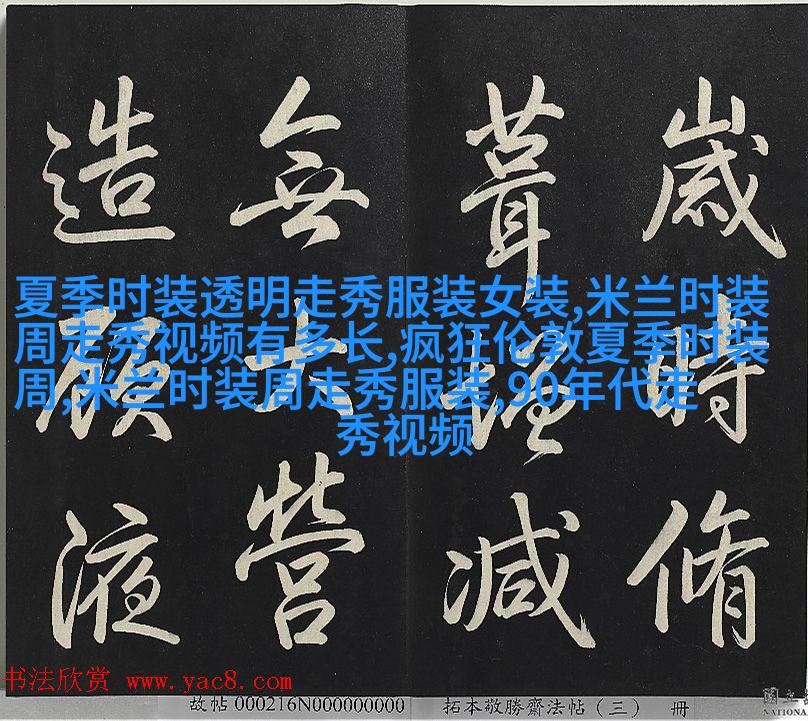 歲時脩
葺增減
無大營
造顧液
夏季时装透明走秀服装女装,米兰时装
周走秀视频有多长,疯狂伦敦夏季时装
周,米兰时装周走秀服装,90年代走
秀视频
书法欣赏 www.yac8.com
故帖000216N000000000 拓本敬勝齋法帖（三） 册
國立
NATIONA